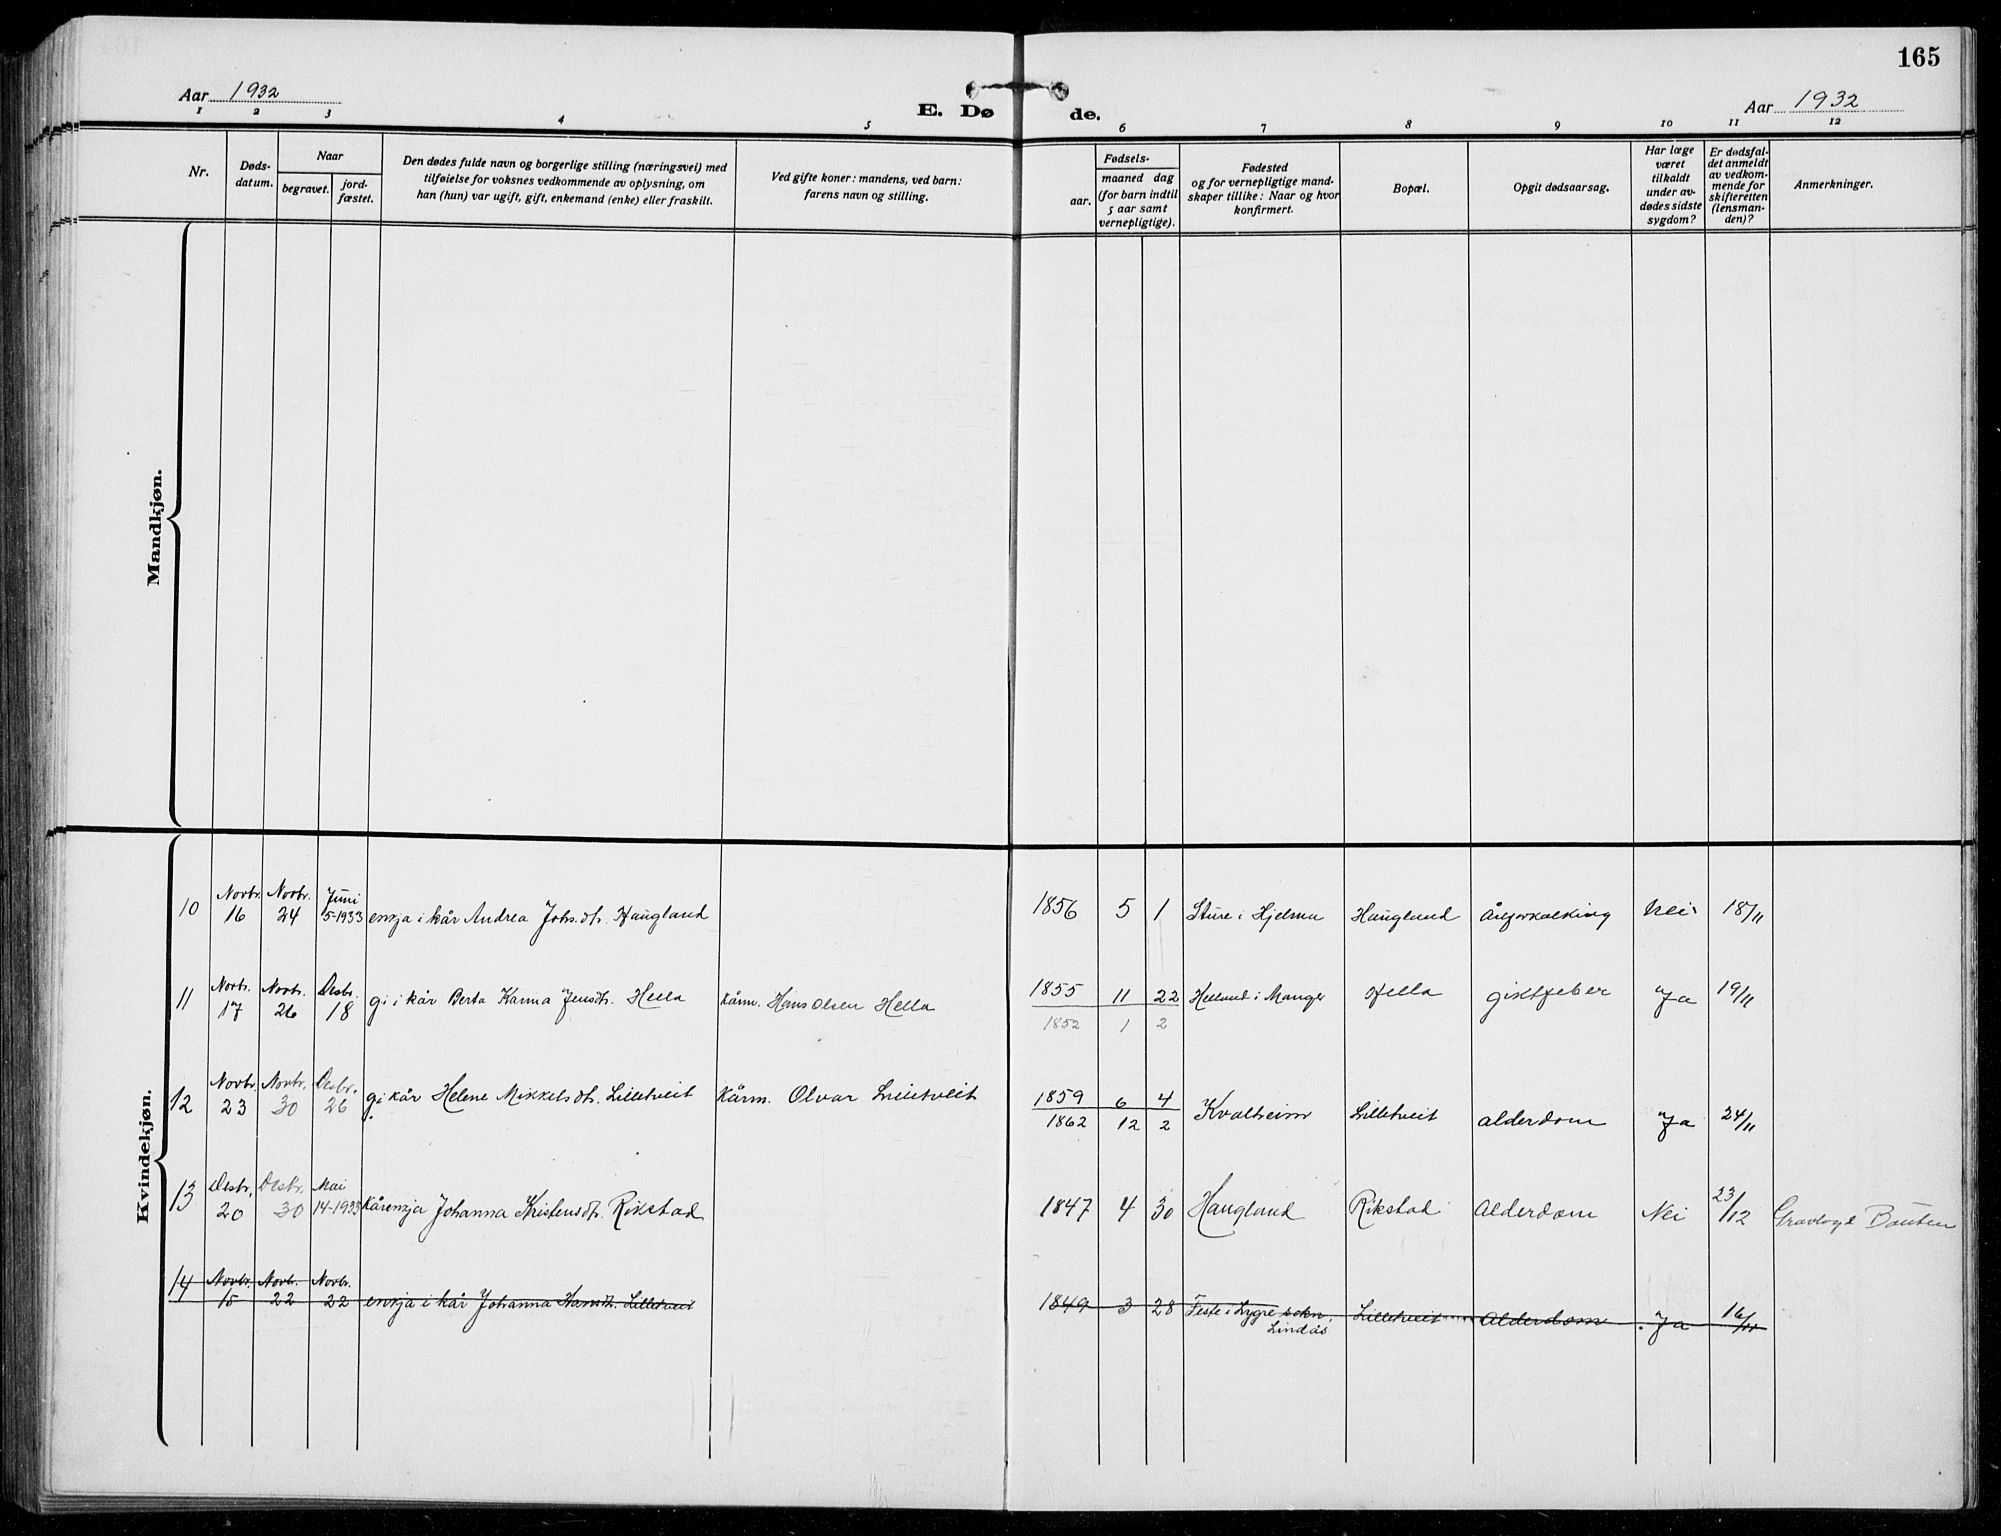 165
Aar 1932
E. Dø
de.
Aar 1932
1 2 3 4 5 6 7 8 9 10 11 12
Nr.
Døds-
datum.
Naar
begravet.
jord-
fæstet.
Den dødes fulde navn og borgerlige stilling (næringsvei) med
tilføielse for voksnes vedkommende av oplysning, om
han (hun) var ugift, gift, enkemand (enke) eller fraskilt.
Ved gifte koner: mandens, ved barn:
farens navn og stilling.
Fødsels-
aar.
maaned dag
(for barn indtil
5 aar samt
vernepligtige).
Fødested
og for vernepligtige mand-
skaper tillike: Naar og hvor
konfirmert.
Bopæl.
Opgit dødsaarsag.
Har læge
været
tilkaldt
under av-
dødes sidste
sygdom?
Er dødsfal-
det anmeldt
av vedkom-
mende for
skifteretten
(lensman-
den)?
Anmerkninger.
Mandkjøn.
Kvindekjøn.
10 Novbr. 16 Novbr. 24 Juni 5-1933 enkja i kår Andrea Johs.dt. Haugland 1856 5 1 Sture i Hjelma Haugland Åreforkalking Nei 18/11
11 Novbr. 17 Novbr. 26 Desbr. 18 gi i kår Berta Karina Jensdt. Hella kårm. Hans Olsen Hella 1855 11 22 Helland i Manger Hella giktfeber Ja 19/11
1852 1 2
12 Novbr. 23 Novbr. 30 Desbr. 26 g. i kår Helene Mikkelsdt. Lilletveit Kårm. Olvar Lilletveit 1859 6 4 Kvalheim Lilletveit alderdom Ja 24/11
1862 12 2
13 Desbr. 20 Desbr. 30 Mai 14-1933 Kårenkja Johanna Kristensdt. Rikstad 1847 4 30 Haugland Rikstad Alderdom Nei 23/12 Gravlagd Bøuten
14 Novbr. 15 Novbr. 22 Novbr. 22 enkja i kår Johanna Hansdt. Lilletveit 1849 3 28 Feste i Lygre sokn, Lilletveit Alderdom Ja 16/11
Lindås